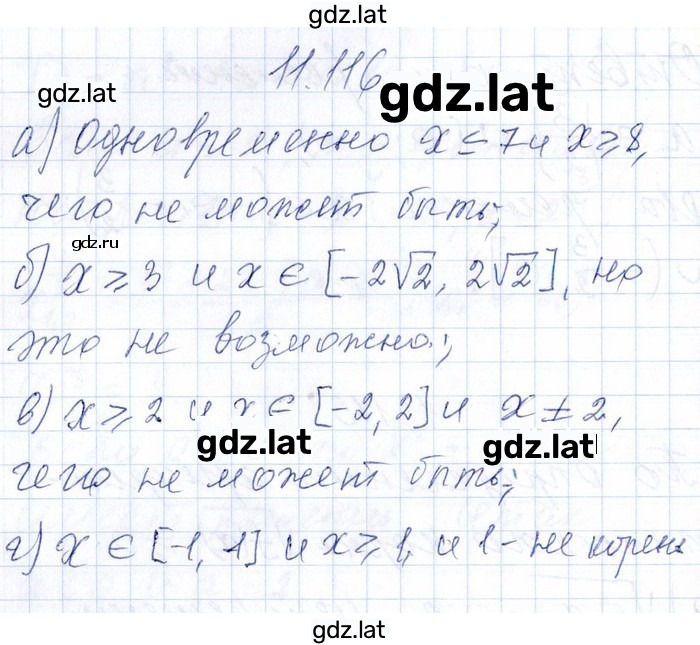 gdz.lat
11.116
gdz.lat
gdz.lat
а) Одновременно x ≤ 7 и x ≥ 8,
чего не может быть;
gdz.ru
б) x ≥ 3 и x ∈ [-2√2, 2√2], но
это не возможно.;
в) x ≥ 2 и x ∈ [-2, 2] и x ≠ 2,
gdz.lat
gdz.lat
чего не может быть;
г) x ∈ [-1, 1] и x ≥ 1, и 1 - не корень
gdz.lat